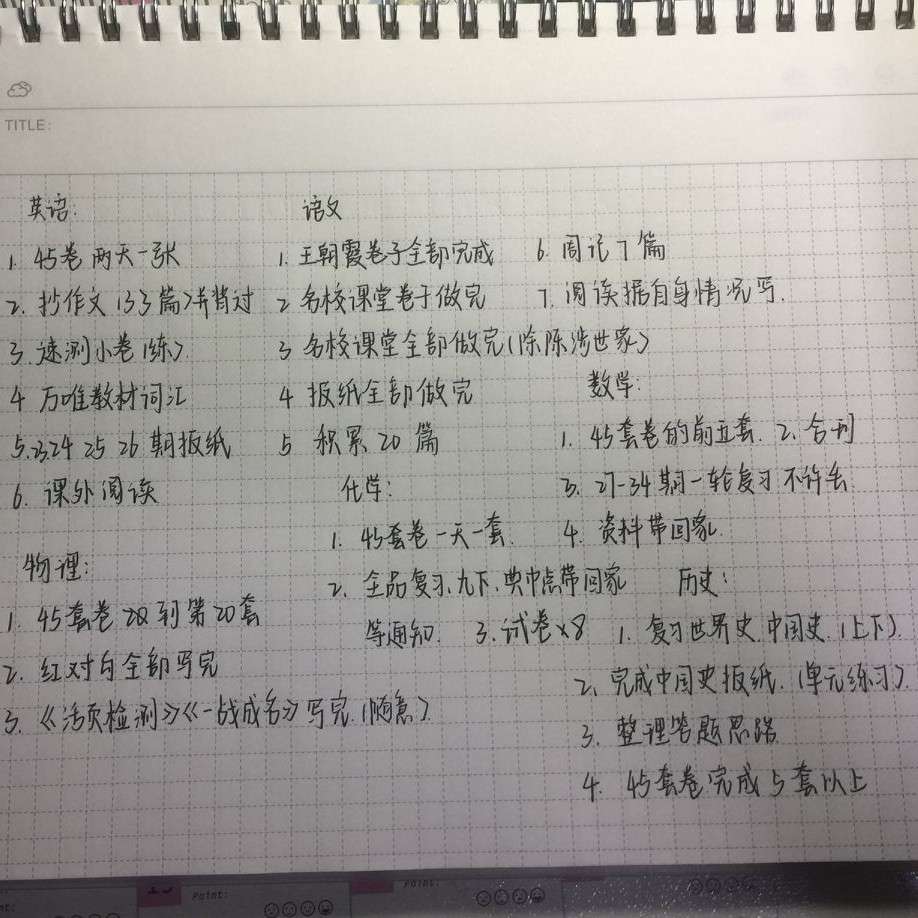 TITLE:
英语:
1. 45卷 两天一张
2. 抄作文(33篇)并背过
3. 速测小卷(练)
4 万唯教材词汇
5. 23 24 25 26 期报纸
6. 课外阅读
语文
1. 王朝霞卷子全部完成
2 名校课堂卷子做完
3 名校课堂全部做完(除陈涉世家)
4 报纸全部做完
5 积累20篇
6. 周记7篇
7. 阅读据自身情况写.
数学:
1. 45套卷的前五套. 2. 合刊
3. 27-34期一轮复习 不许丢
4. 资料带回家.
化学:
1. 45套卷一天一套.
2. 全品复习、九下、典中点带回家
等通知. 3. 试卷×8
物理:
1. 45套卷 到第20套
2. 红对勾全部写完
3. 《活页检测》《一战成名》写完.(随意)
历史:
1. 复习世界史.中国史.(上下).
2. 完成中国史报纸.(单元练习).
3. 整理答题思路
4. 45套卷完成5套以上
Point:
Point: